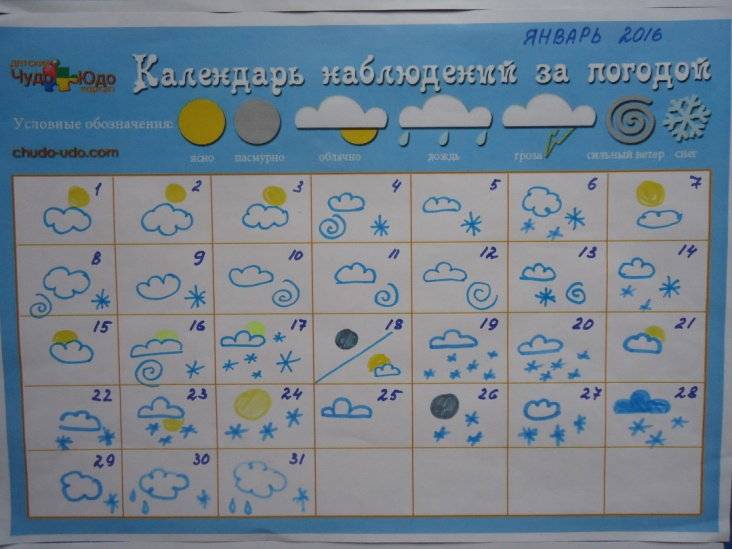 ЯНВАРЬ 2016
детский
Чудо Юдо
портал
Календарь наблюдений за погодой
Условные обозначения:
chudo-udo.com
ясно пасмурно облачно дождь гроза сильный ветер снег
1 2 3 4 5 6 7
8 9 10 11 12 13 14
15 16 17 18 19 20 21
22 23 24 25 26 27 28
29 30 31